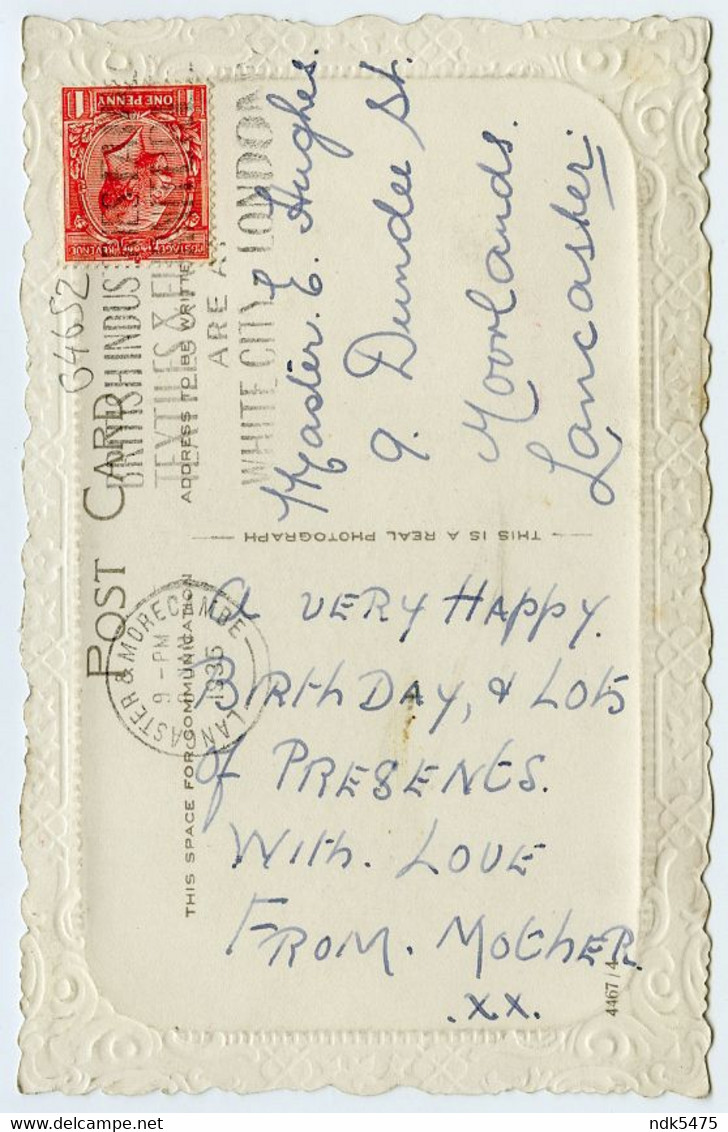 POST CARD
64652
THIS SPACE FOR COMMUNICATION
ADDRESS TO BE WRITTE
ONE PENNY
1 1
POSTAGE REVENUE
BRITISH INDUS
TEXTILES &
ARE A
WHITE CITY LONDON
LANCASTER & MORECAMBE
9 - PM
1935
THIS IS A REAL PHOTOGRAPH
Master. E. Hughes.
9. Dundee St.
Moorlands.
Lancaster.
A VERY HAppy.
BirthDAY, & Lots
of PRESENtS.
With. LOVE
FROM. MOthER.
.xx.
4467/4
ndk5475